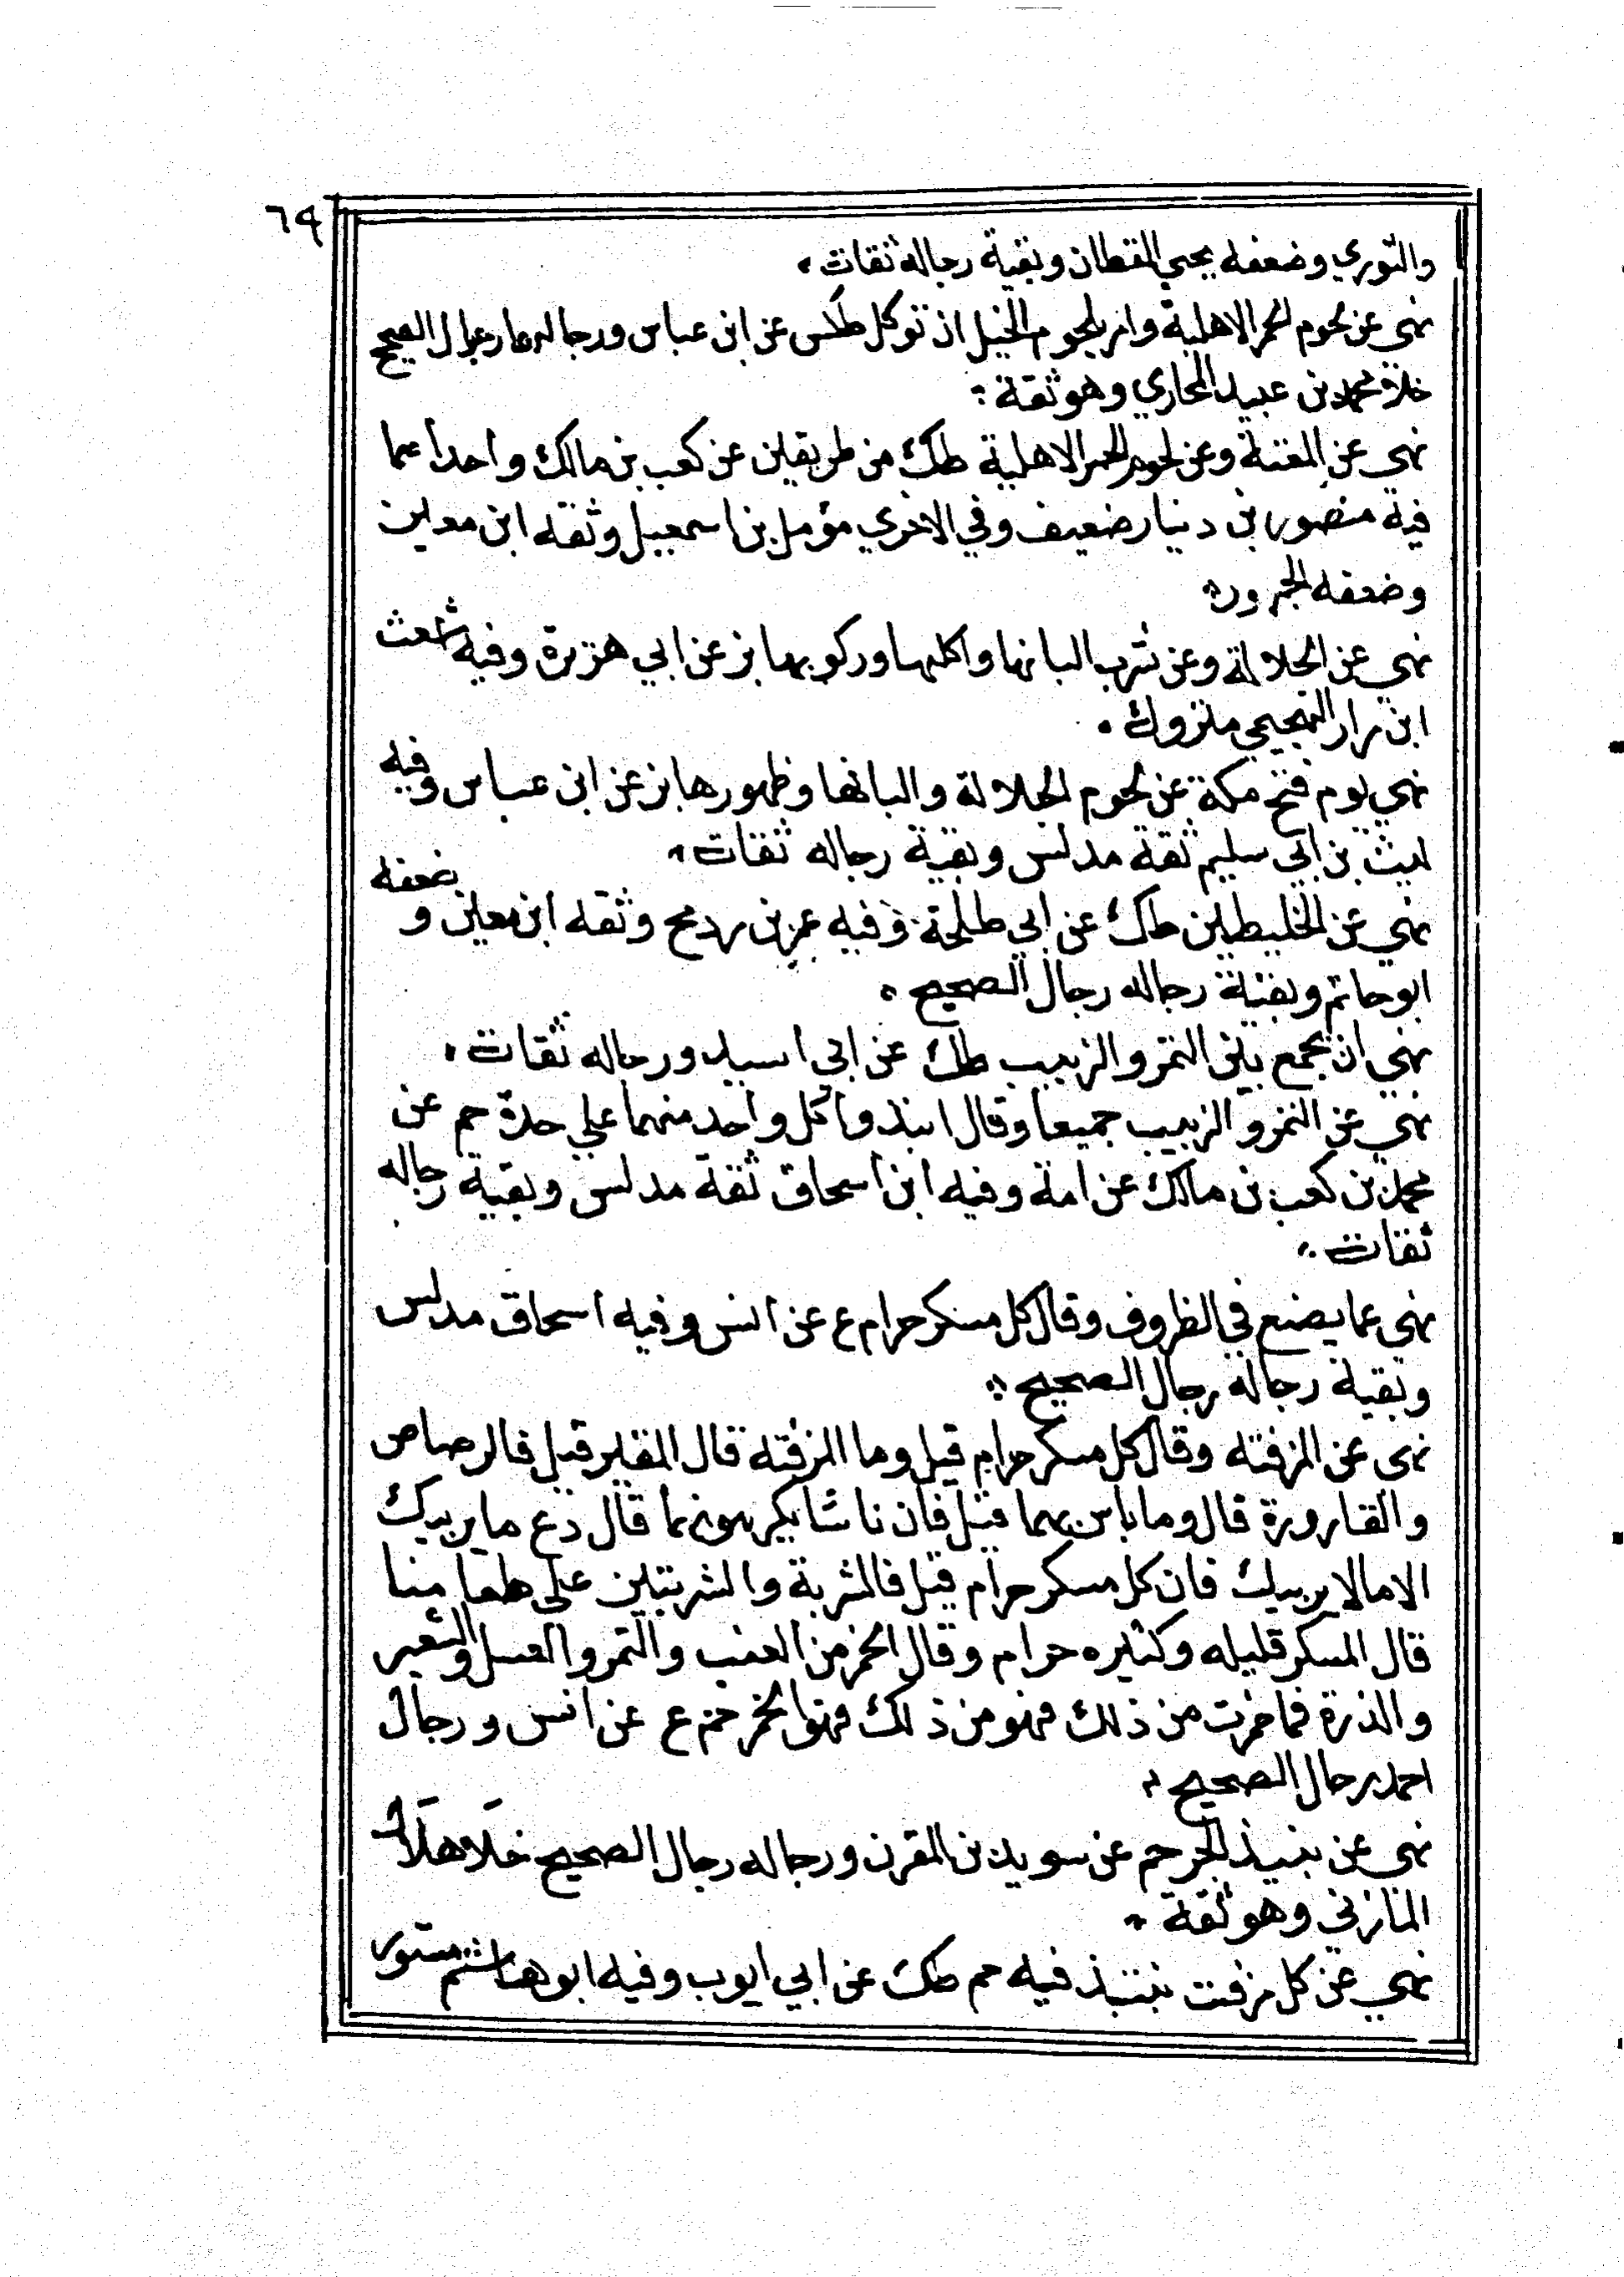 ٦٩
والثوري وضعفه يحيي القطان وبقية رجاله ثقات
نهي عن لحوم الحمر الاهلية وامر بلحوم الخيل ان توكل طكس عن ابن عباس ورجالهما رجال الصحيح
خلا محمد بن عبيد المحاربي وهو ثقة
نهي عن المتعة وعن لحوم الحمر الاهلية طك من طريقين عن كعب بن مالك واحداهما
فيه منصور بن دينار ضعيف وفي الاخري مؤمل بن اسمعيل وثقه ابن معين
وضعفه الجمهور
نهي عن الجلالة وعن شرب البانها واكلها وركوبها بز عن ابي هريرة وفيه اشعث
ابن براز الهجيمي متروك
نهي يوم فتح مكة عن لحوم الجلالة والبانها وظهورها بز عن ابن عباس وفيه
ليث بن ابي سليم ثقة مدلس وبقية رجاله ثقات
نهي عن الخليطين طك عن ابي طلحة وفيه عمر بن رديح وثقه ابن معين وضعفه
ابو حاتم وبقية رجاله رجال الصحيح
نهي ان يجمع بين التمر والزبيب طك عن ابي اسيد ورجاله ثقات
نهي عن التمر والزبيب جميعا وقال انبذوا كل واحد منهما علي حدة حم عن
محمد بن كعب بن مالك عن امه وفيه ابن اسحاق ثقة مدلس وبقية رجاله
ثقات
نهي عما يصنع في الظروف وقال كل مسكر حرام ع عن انس وفيه اسحاق مدلس
وبقية رجاله رجال الصحيح
نهي عن المزفته وقال كل مسكر حرام قيل وما المزفته قال المقير قيل فالرصاص
والقارورة قال وما باس بهما قيل فان ناسا يكرهونهما قال دع ما يريبك
الا ما لا يريبك فان كل مسكر حرام قيل فالشربة والشربتين علي طعامنا
قال المسكر قليله وكثيره حرام وقال الخمر من العنب والتمر والعسل والشعير
والذرة فما خمرت من ذلك فهو من ذلك فهو الخمر حم ع عن انس ورجال
احمد رجال الصحيح
نهي عن نبيذ الجر حم عن سويد بن المقرن ورجاله رجال الصحيح خلا هلال
المازني وهو ثقة
نهي عن كل مزفت ينتبذ فيه حم طك عن ابي ايوب وفيه ابو هاشم مستور